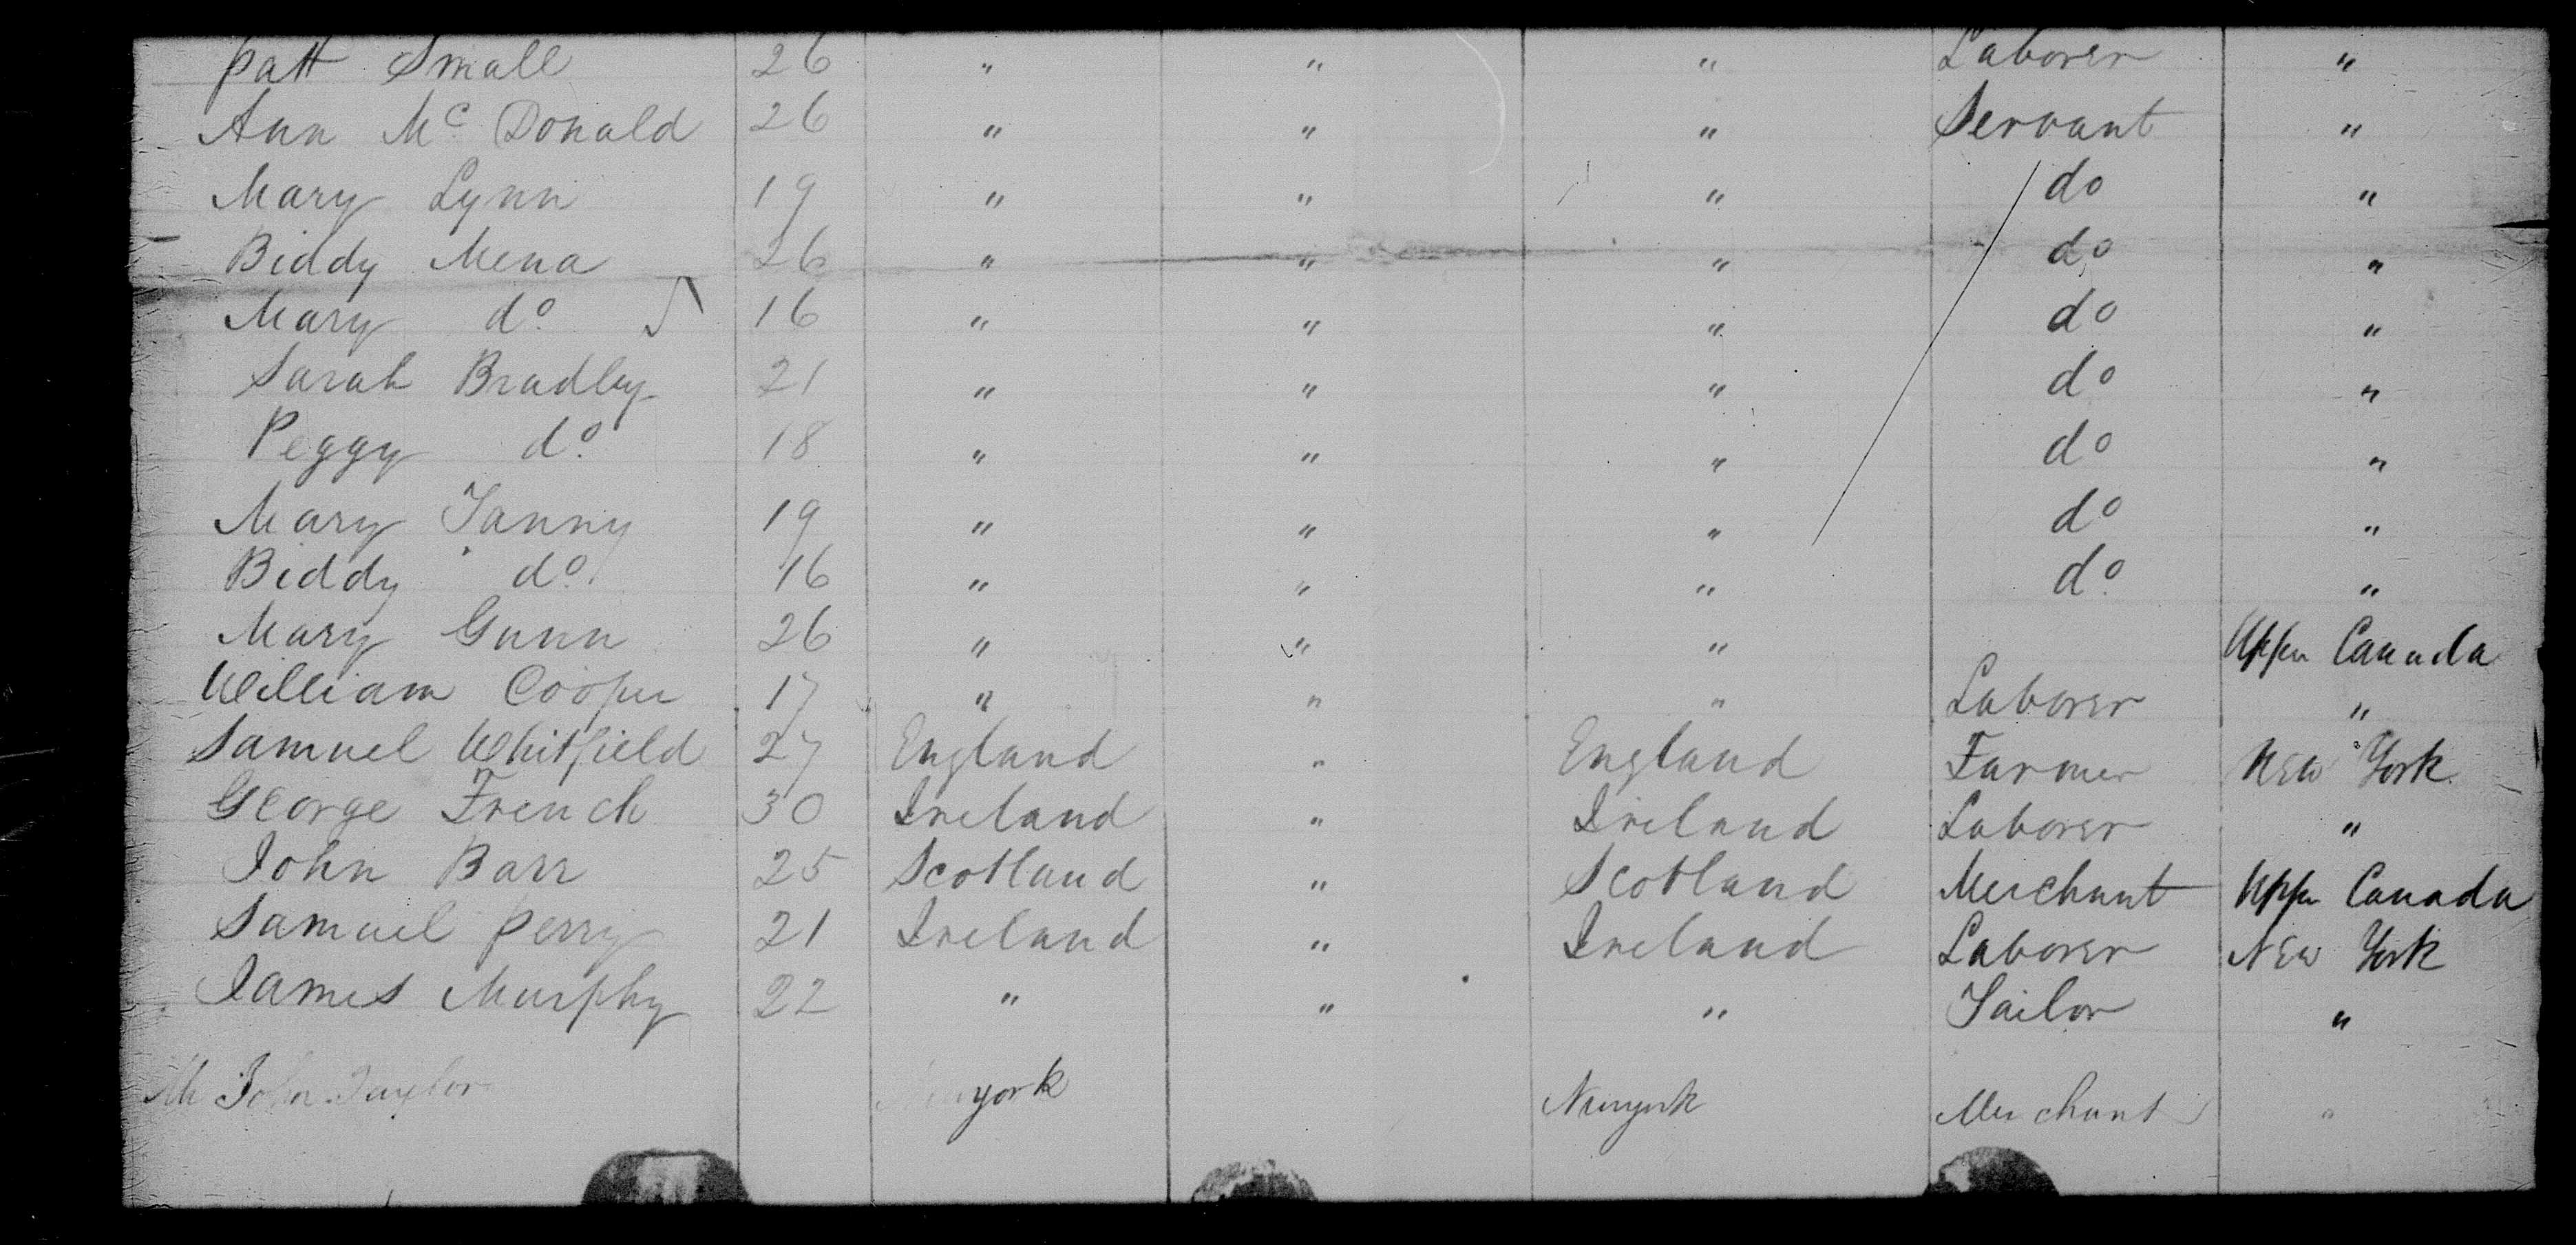 Patt Small 26 " " " Laborer "
Ann Mc Donald 26 " " " Servant "
Mary Lynn 19 " " " do "
Biddy Mena 26 " " " do "
Mary do 16 " " " do "
Sarah Bradley 21 " " " do "
Peggy do 18 " " " do "
Mary Tanny 19 " " " do "
Biddy do 16 " " " do "
Mary Gunn 26 " " " Upper Canada
William Cooper 17 " " " Laborer "
Samuel Whitfield 27 England " England Farmer New York
George French 30 Ireland " Ireland Laborer "
John Barr 25 Scotland " Scotland Merchant Upper Canada
Samuel Perry 21 Ireland " Ireland Laborer New York
James Murphy 22 " " " Tailor "
Mr John Taylor New york Newyork Merchant "